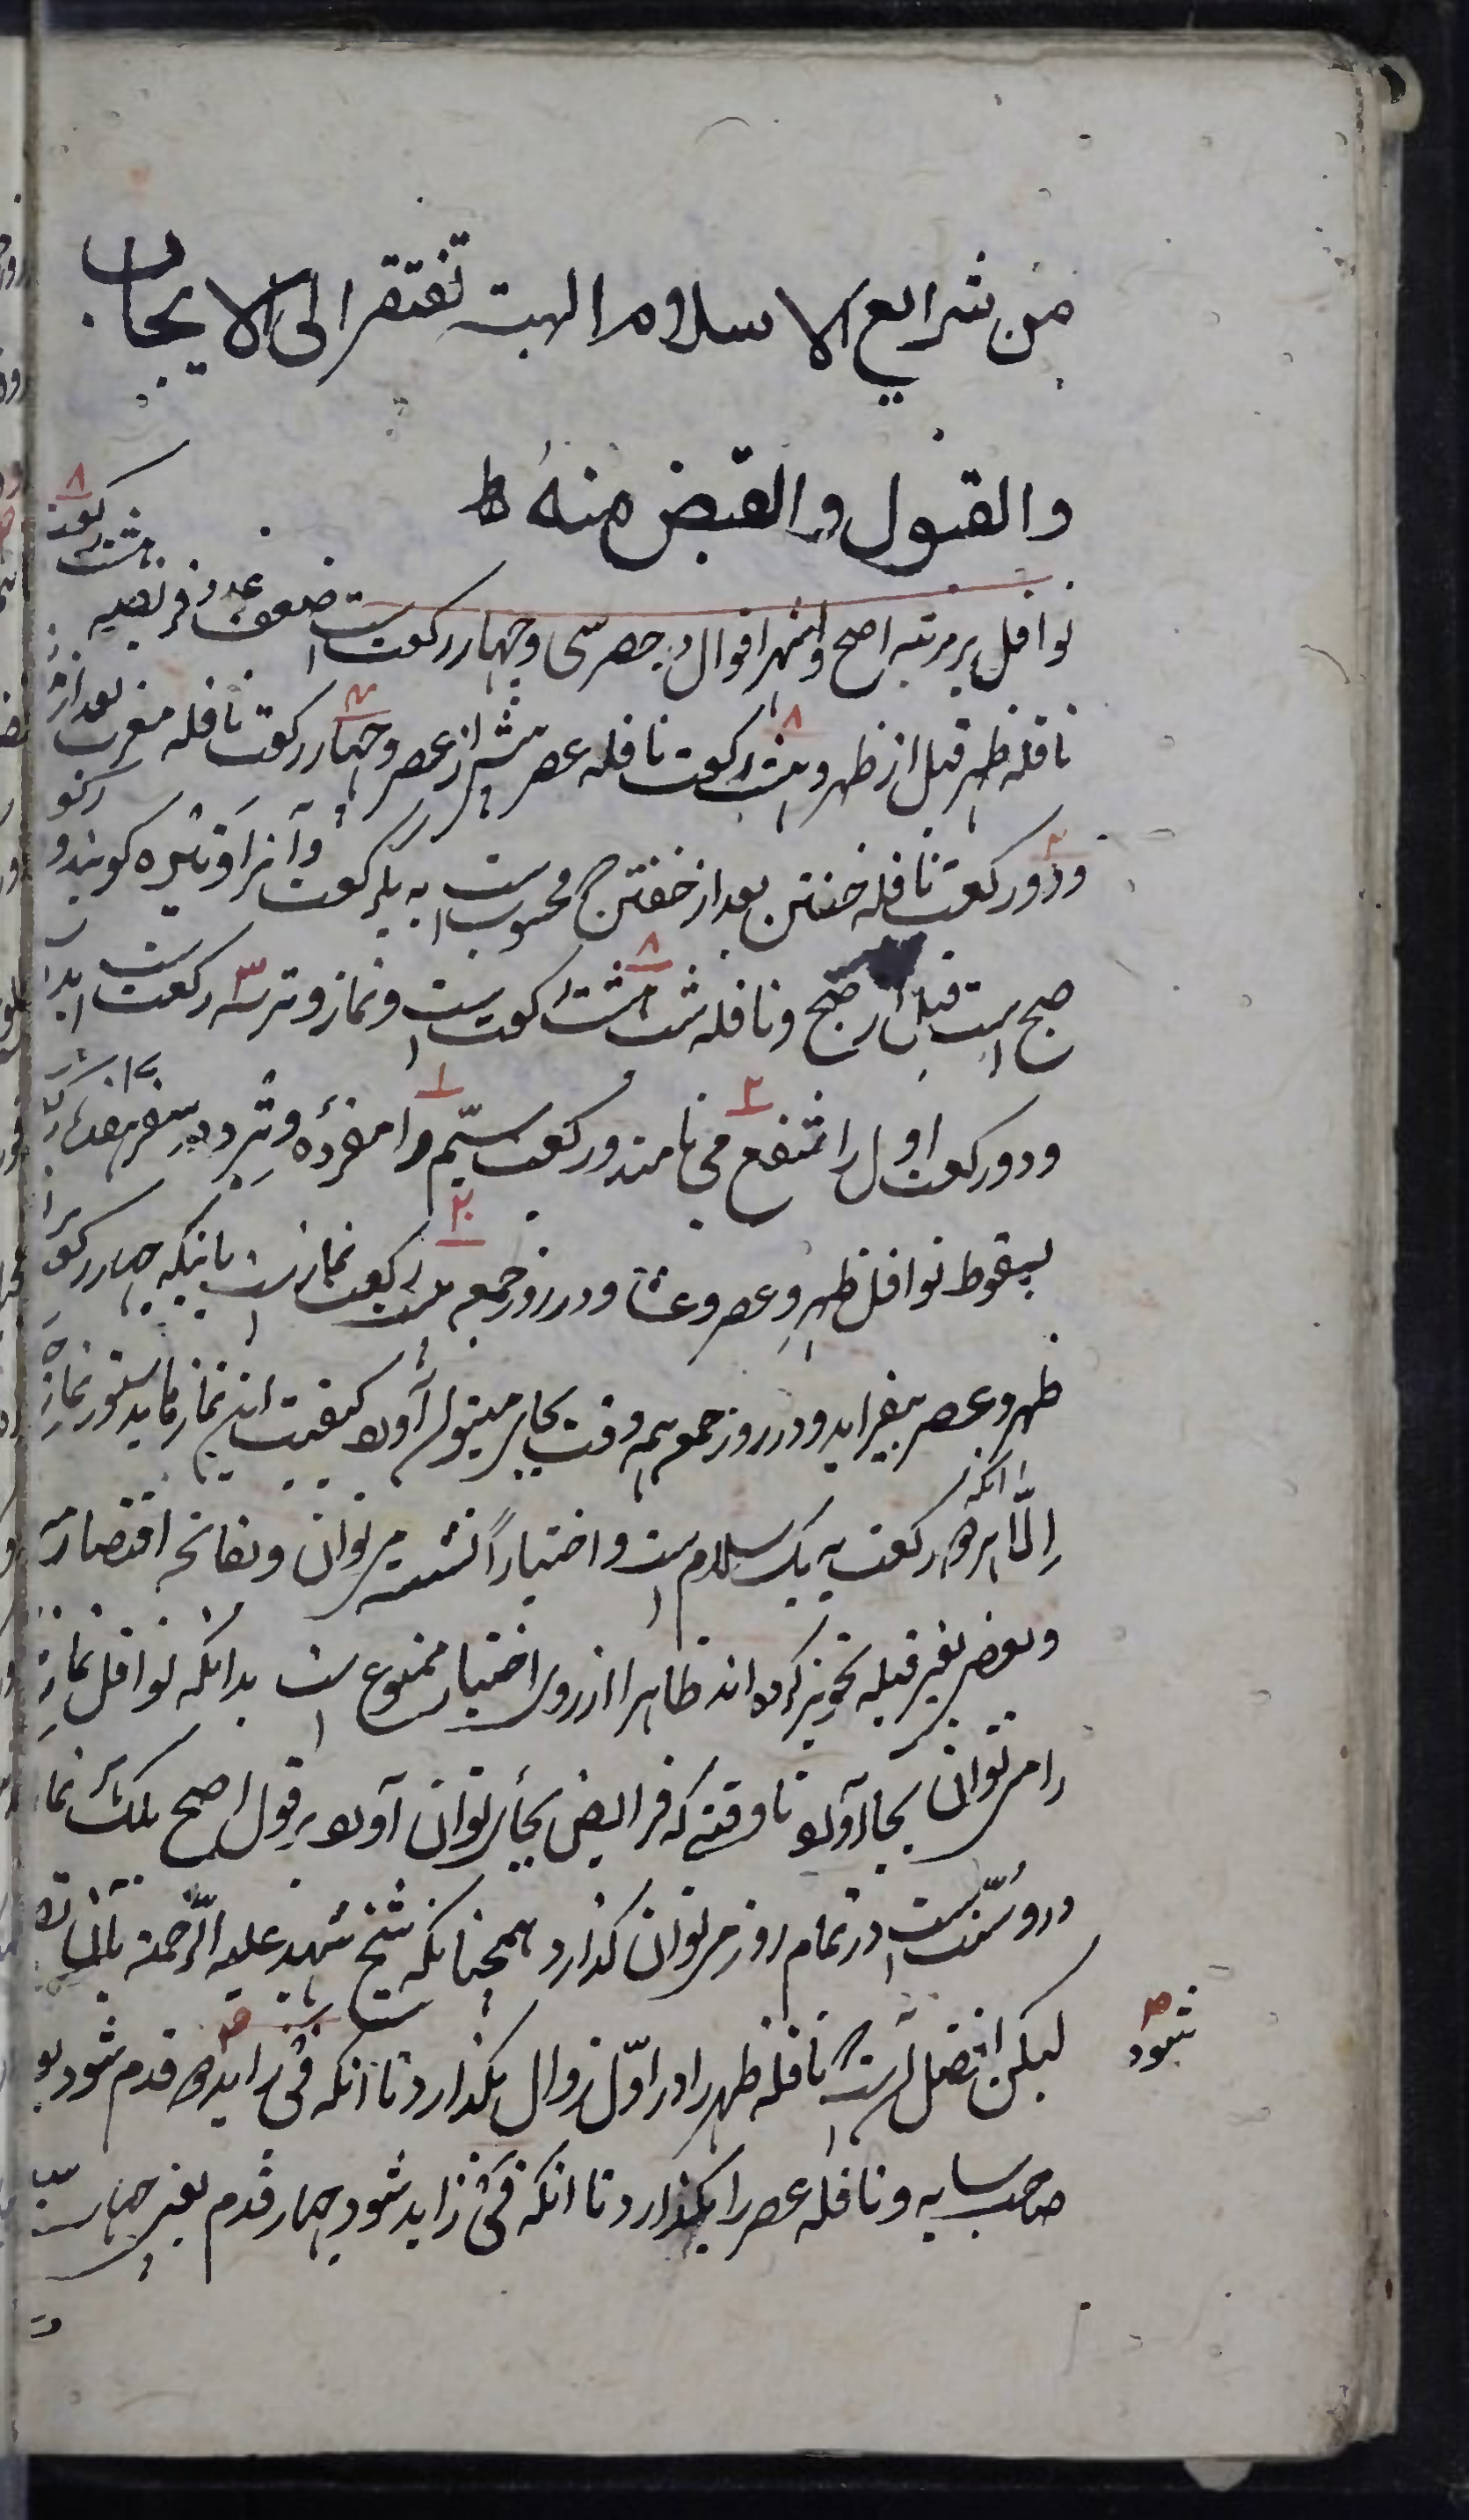 من شرايع الاسلام الهبة تفتقر الى الايجاب
والقبول والقبض منه ط
نوافل يرمرتبه اصح واشهر اقوال در حضر سی و چهار رکعت است ضعف عدد فریضه هشت رکعت ٨
نافله ظهر قبل از ظهر و هشت رکعت نافله عصر پیش از عصر و چهار رکعت نافله مغرب بعد از
و دو رکعت نافله خفتن بعد از خفتن که محسوب است به یک رکعت و آنرا وتیره کویند و رکو
صبح است قبل از صبح و نافله شب هشت رکعت است و نماز وتر سه رکعت است
و دو رکعت اول را شفع می نامند و رکعت سیّم را مفرده وتر و در سفر
بسقوط نوافل ظهر و عصر و عشا و در روز جمعه بیست رکعت نماز است بانکه چهار رکعت
ظهر و عصر بیفزاید و در روز جمعه همه وقت بجای میتوان آورد کیفیت این نمازها بدستور نماز
الّا انکه هر دو رکعت به یک سلام است و اختیاراً نشسته می توان و بفاتحه اقتصار
و بعضی بغیر قبله تجویز کرده اند ظاهرا از روی اختیار ممنوع است بدانکه نوافل نماز
را می توان بجا آورد تا وقتی که فرایض بجای توان آورد بر قول اصح بلک نما
درو سنّت است در تمام روز می توان کذارد همچنانکه شیخ شهید علیه الرّحمة بآن
لیکن افضل آنست که نافله ظهر را در اوّل زوال بکذارد تا انکه فئ زاید دو قدم شود
شود
صاحب سایه و نافله عصر را بکذارد تا انکه فئ زاید شود چهار قدم یعنی چهار